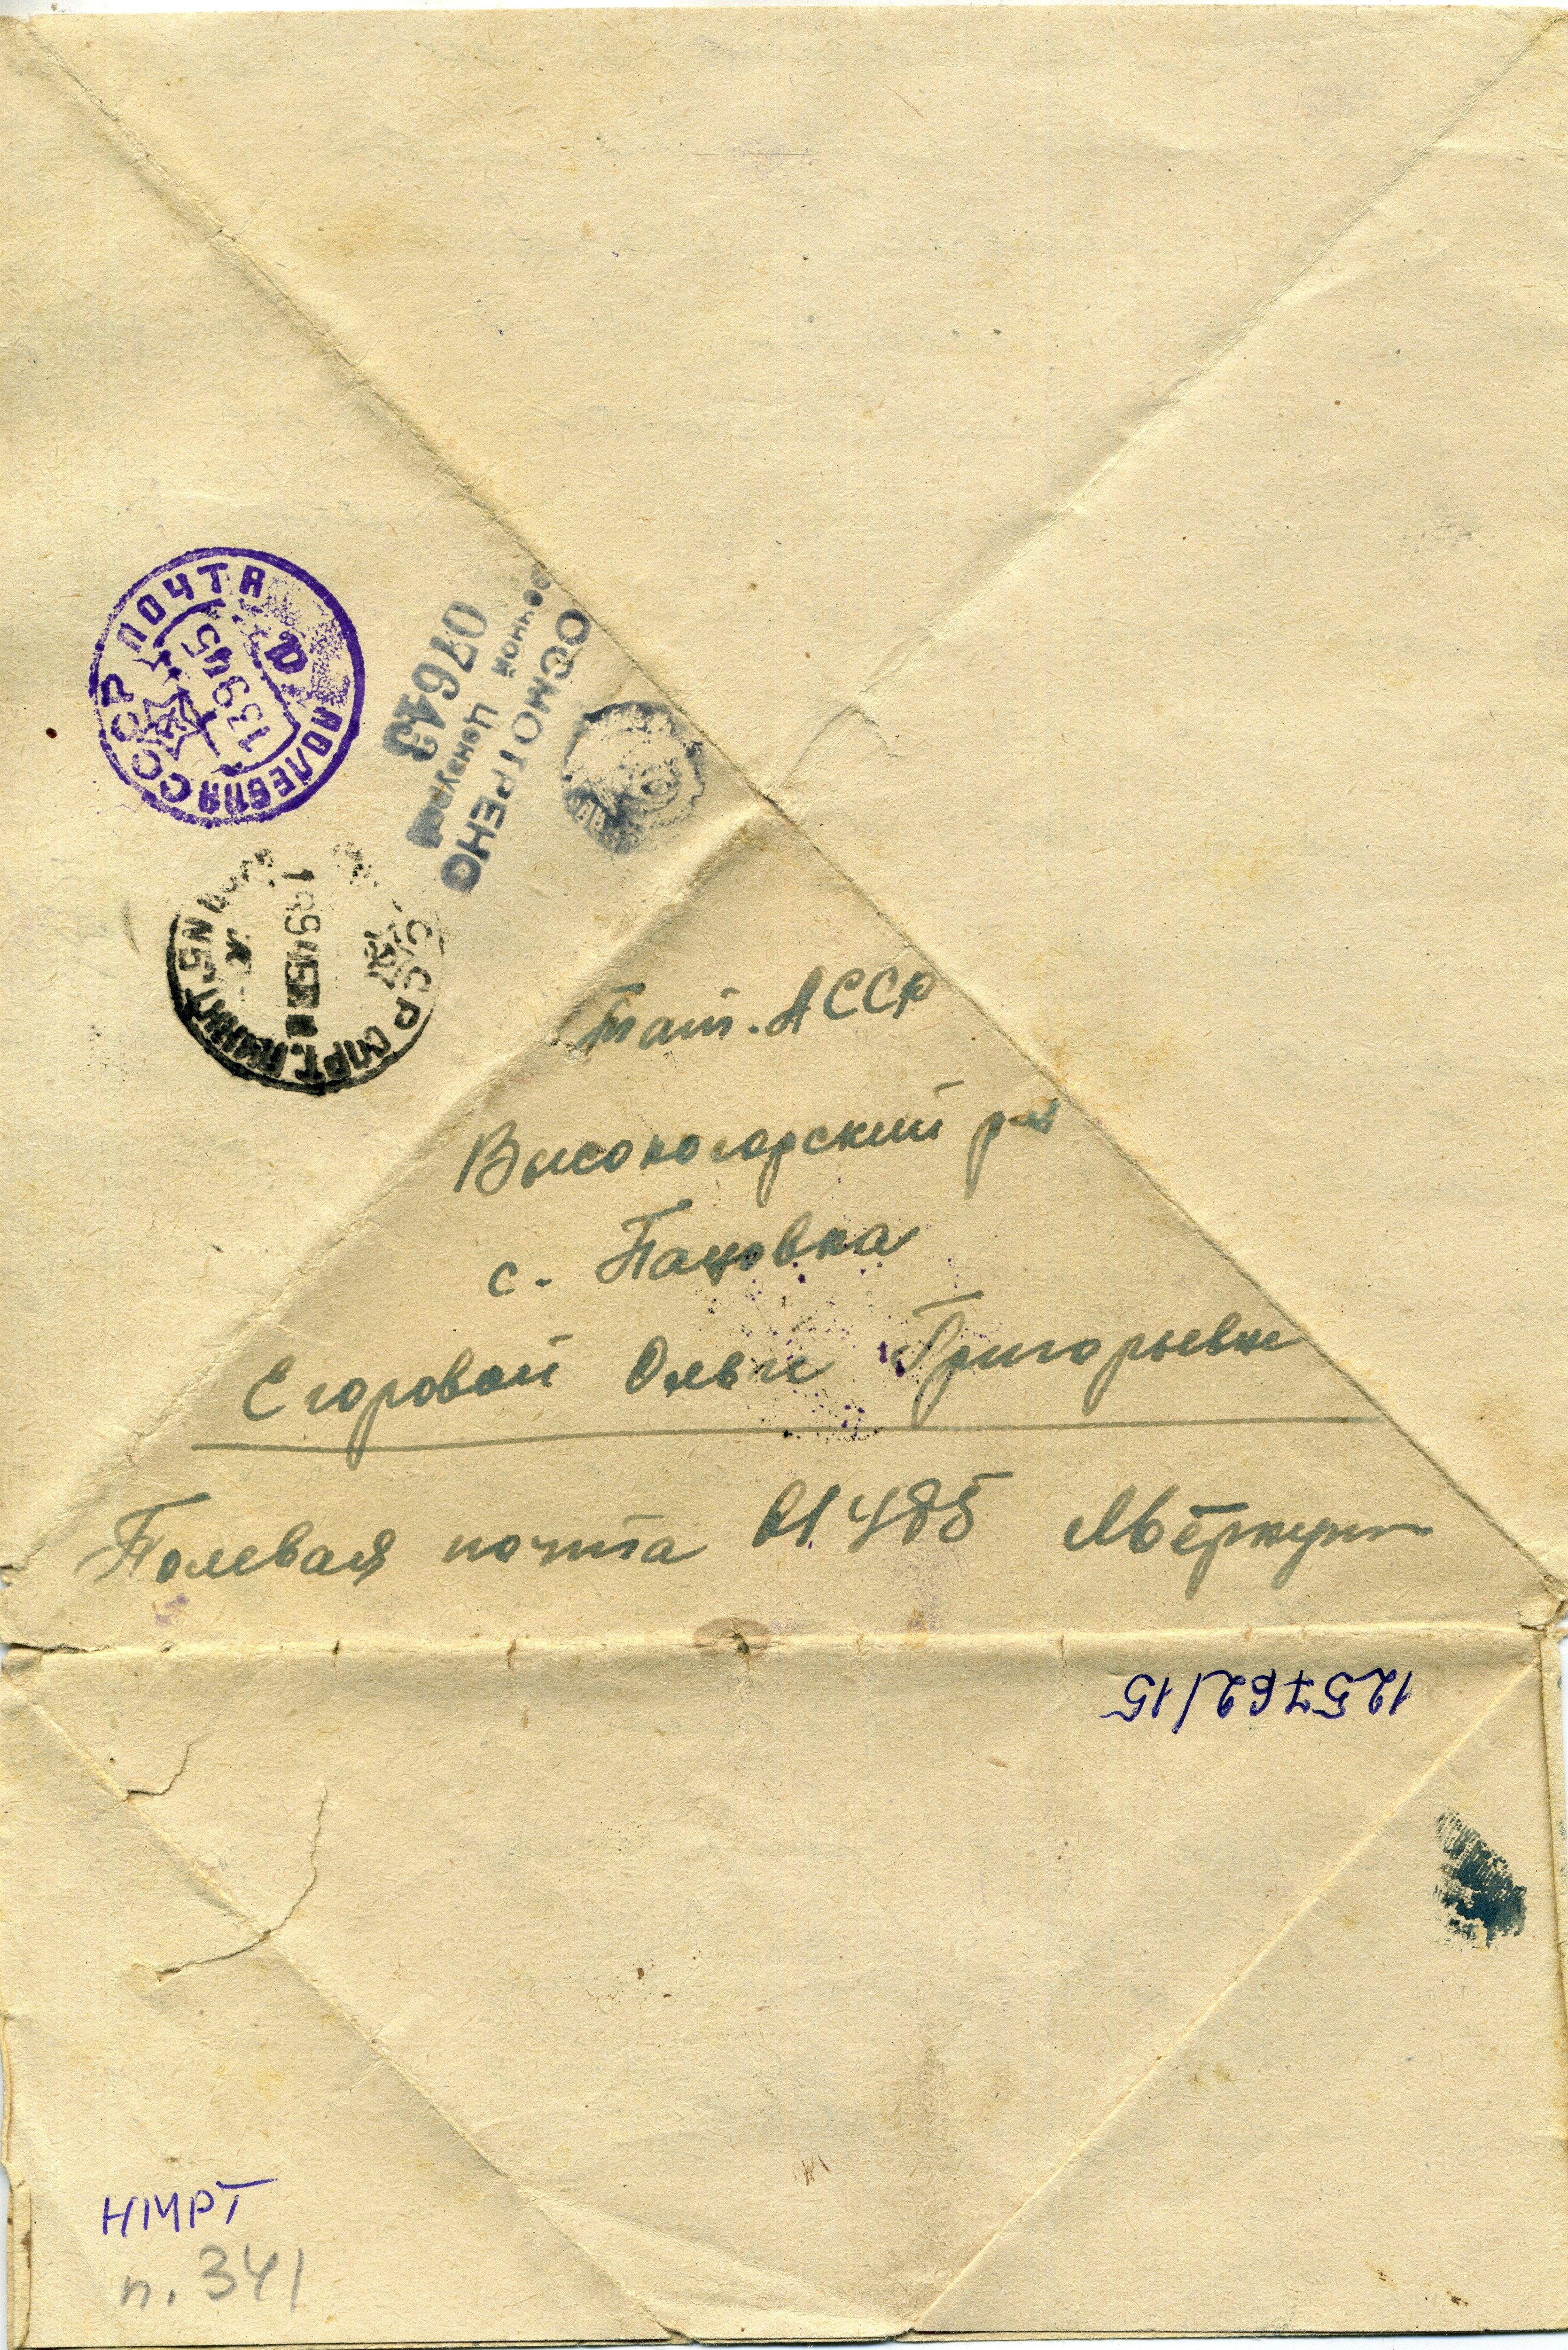 СССР ПОЧТА
ПОЛЕВАЯ
13 9 45
ОСМОТРЕНО
Военной Цензурой
07643
СССР СОРТ. ПУНКТ
9 45
Тат. АССР
Высокогорский р-н
с. Пановка
Егоровой Ольге Григорьевне
Полевая почта 01485
125762/15
НМРТ
п. 341